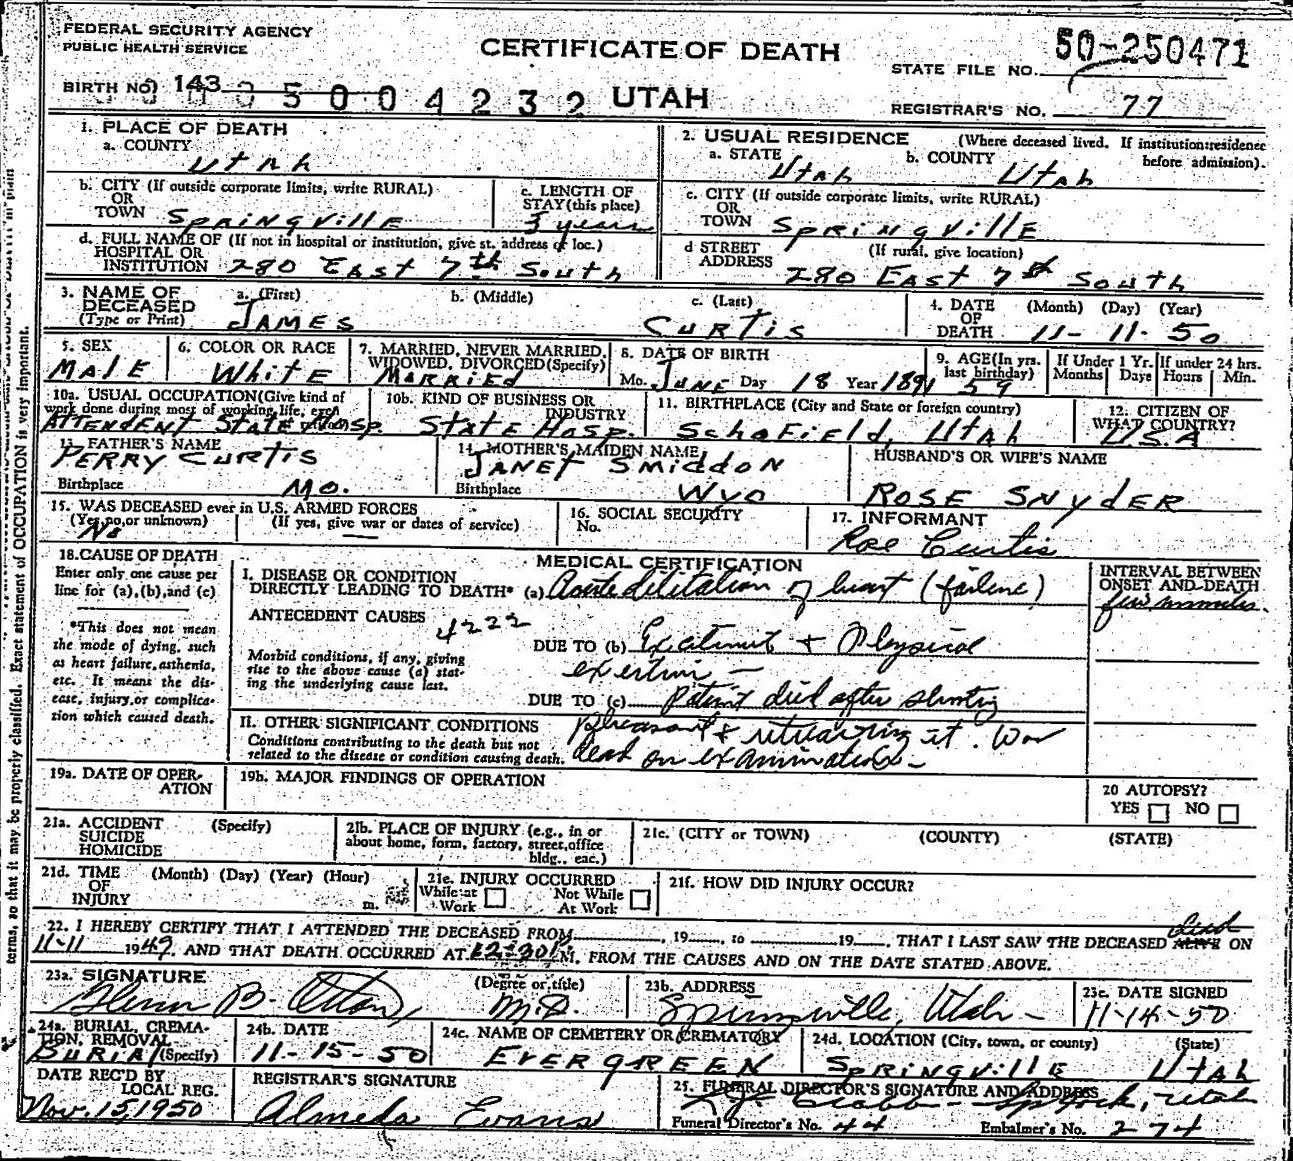 FEDERAL SECURITY AGENCY
PUBLIC HEALTH SERVICE
CERTIFICATE OF DEATH
UTAH
STATE FILE NO. 50-250471
BIRTH NO. 143
5004232
REGISTRAR'S NO. 77
1. PLACE OF DEATH
a. COUNTY
Utah
2. USUAL RESIDENCE (Where deceased lived. If institution: residence before admission).
a. STATE Utah
b. COUNTY Utah
b. CITY (If outside corporate limits, write RURAL)
OR
TOWN Springville
c. LENGTH OF
STAY (this place)
3 years
c. CITY (If outside corporate limits, write RURAL)
OR
TOWN Springville
d. FULL NAME OF (If not in hospital or institution, give st. address or loc.)
HOSPITAL OR
INSTITUTION 280 East 7th South
d STREET (If rural, give location)
ADDRESS 280 East 7th South
3. NAME OF
DECEASED
(Type or Print)
a. (First) JAMES
b. (Middle)
c. (Last) CURTIS
4. DATE
OF
DEATH
(Month) (Day) (Year)
11-11-50
5. SEX
MALE
6. COLOR OR RACE
White
7. MARRIED, NEVER MARRIED,
WIDOWED, DIVORCED (Specify)
MARRIED
8. DATE OF BIRTH
Mo. JUNE Day 18 Year 1891
9. AGE (In yrs.
last birthday)
59
If Under 1 Yr.
Months Days
If under 24 hrs.
Hours Min.
10a. USUAL OCCUPATION (Give kind of
work done during most of working life, even
ATTENDENT STATE Hosp.
10b. KIND OF BUSINESS OR
INDUSTRY
STATE Hosp.
11. BIRTHPLACE (City and State or foreign country)
Schofield, Utah
12. CITIZEN OF
WHAT COUNTRY?
U.S.A
13. FATHER'S NAME
PERRY CURTIS
Birthplace Mo.
14. MOTHER'S MAIDEN NAME
JANET SMIDDON
Birthplace Wyo
HUSBAND'S OR WIFE'S NAME
ROSE SNYDER
15. WAS DECEASED ever in U.S. ARMED FORCES
(Yes, no, or unknown) (If yes, give war or dates of service)
No —
16. SOCIAL SECURITY
No.
17. INFORMANT
Rose Curtis
18. CAUSE OF DEATH
Enter only one cause per
line for (a), (b), and (c)
*This does not mean
the mode of dying, such
as heart failure, asthenia,
etc. It means the dis-
ease, injury, or complica-
tion which caused death.
MEDICAL CERTIFICATION
I. DISEASE OR CONDITION
DIRECTLY LEADING TO DEATH* (a) Acute dilitation of heart (failure)
INTERVAL BETWEEN
ONSET AND DEATH
few minutes.
ANTECEDENT CAUSES
4222
Morbid conditions, if any, giving
rise to the above cause (a) stat-
ing the underlying cause last.
DUE TO (b) + Physical
exertion —
DUE TO (c) Patient died after shooting
II. OTHER SIGNIFICANT CONDITIONS
Conditions contributing to the death but not
related to the disease or condition causing death.
pheasant & retrieving it. Was
dead on examination —
19a. DATE OF OPER-
ATION
19b. MAJOR FINDINGS OF OPERATION
20 AUTOPSY?
YES NO
21a. ACCIDENT (Specify)
SUICIDE
HOMICIDE
21b. PLACE OF INJURY (e.g., in or
about home, farm, factory, street, office
bldg., eac.)
21c. (CITY or TOWN) (COUNTY) (STATE)
21d. TIME (Month) (Day) (Year) (Hour)
OF
INJURY m.
21e. INJURY OCCURRED
While at Work Not While At Work
21f. HOW DID INJURY OCCUR?
22. I HEREBY CERTIFY THAT I ATTENDED THE DECEASED FROM , 19 , to 19 , THAT I LAST SAW THE DECEASED ALIVE dead ON
11-11 1949, AND THAT DEATH OCCURRED AT 12:30 P.M. FROM THE CAUSES AND ON THE DATE STATED ABOVE.
23a. SIGNATURE (Degree or title)
Glenn B. Orton M.D.
23b. ADDRESS
Springville, Utah —
23c. DATE SIGNED
11-14-50
24a. BURIAL, CREMA-
TION, REMOVAL
BURIAL (Specify)
24b. DATE
11-15-50
24c. NAME OF CEMETERY OR CREMATORY
EVERGREEN
24d. LOCATION (City, town, or county) (State)
SPRINGVILLE UTAH
DATE REC'D BY
LOCAL REG.
Nov. 15, 1950
REGISTRAR'S SIGNATURE
Almeda Evans
25. FUNERAL DIRECTOR'S SIGNATURE AND ADDRESS
Utah
Funeral Director's No. 44 Embalmer's No. 274
terms, so that it may be properly classified. Exact statement of OCCUPATION is very important.